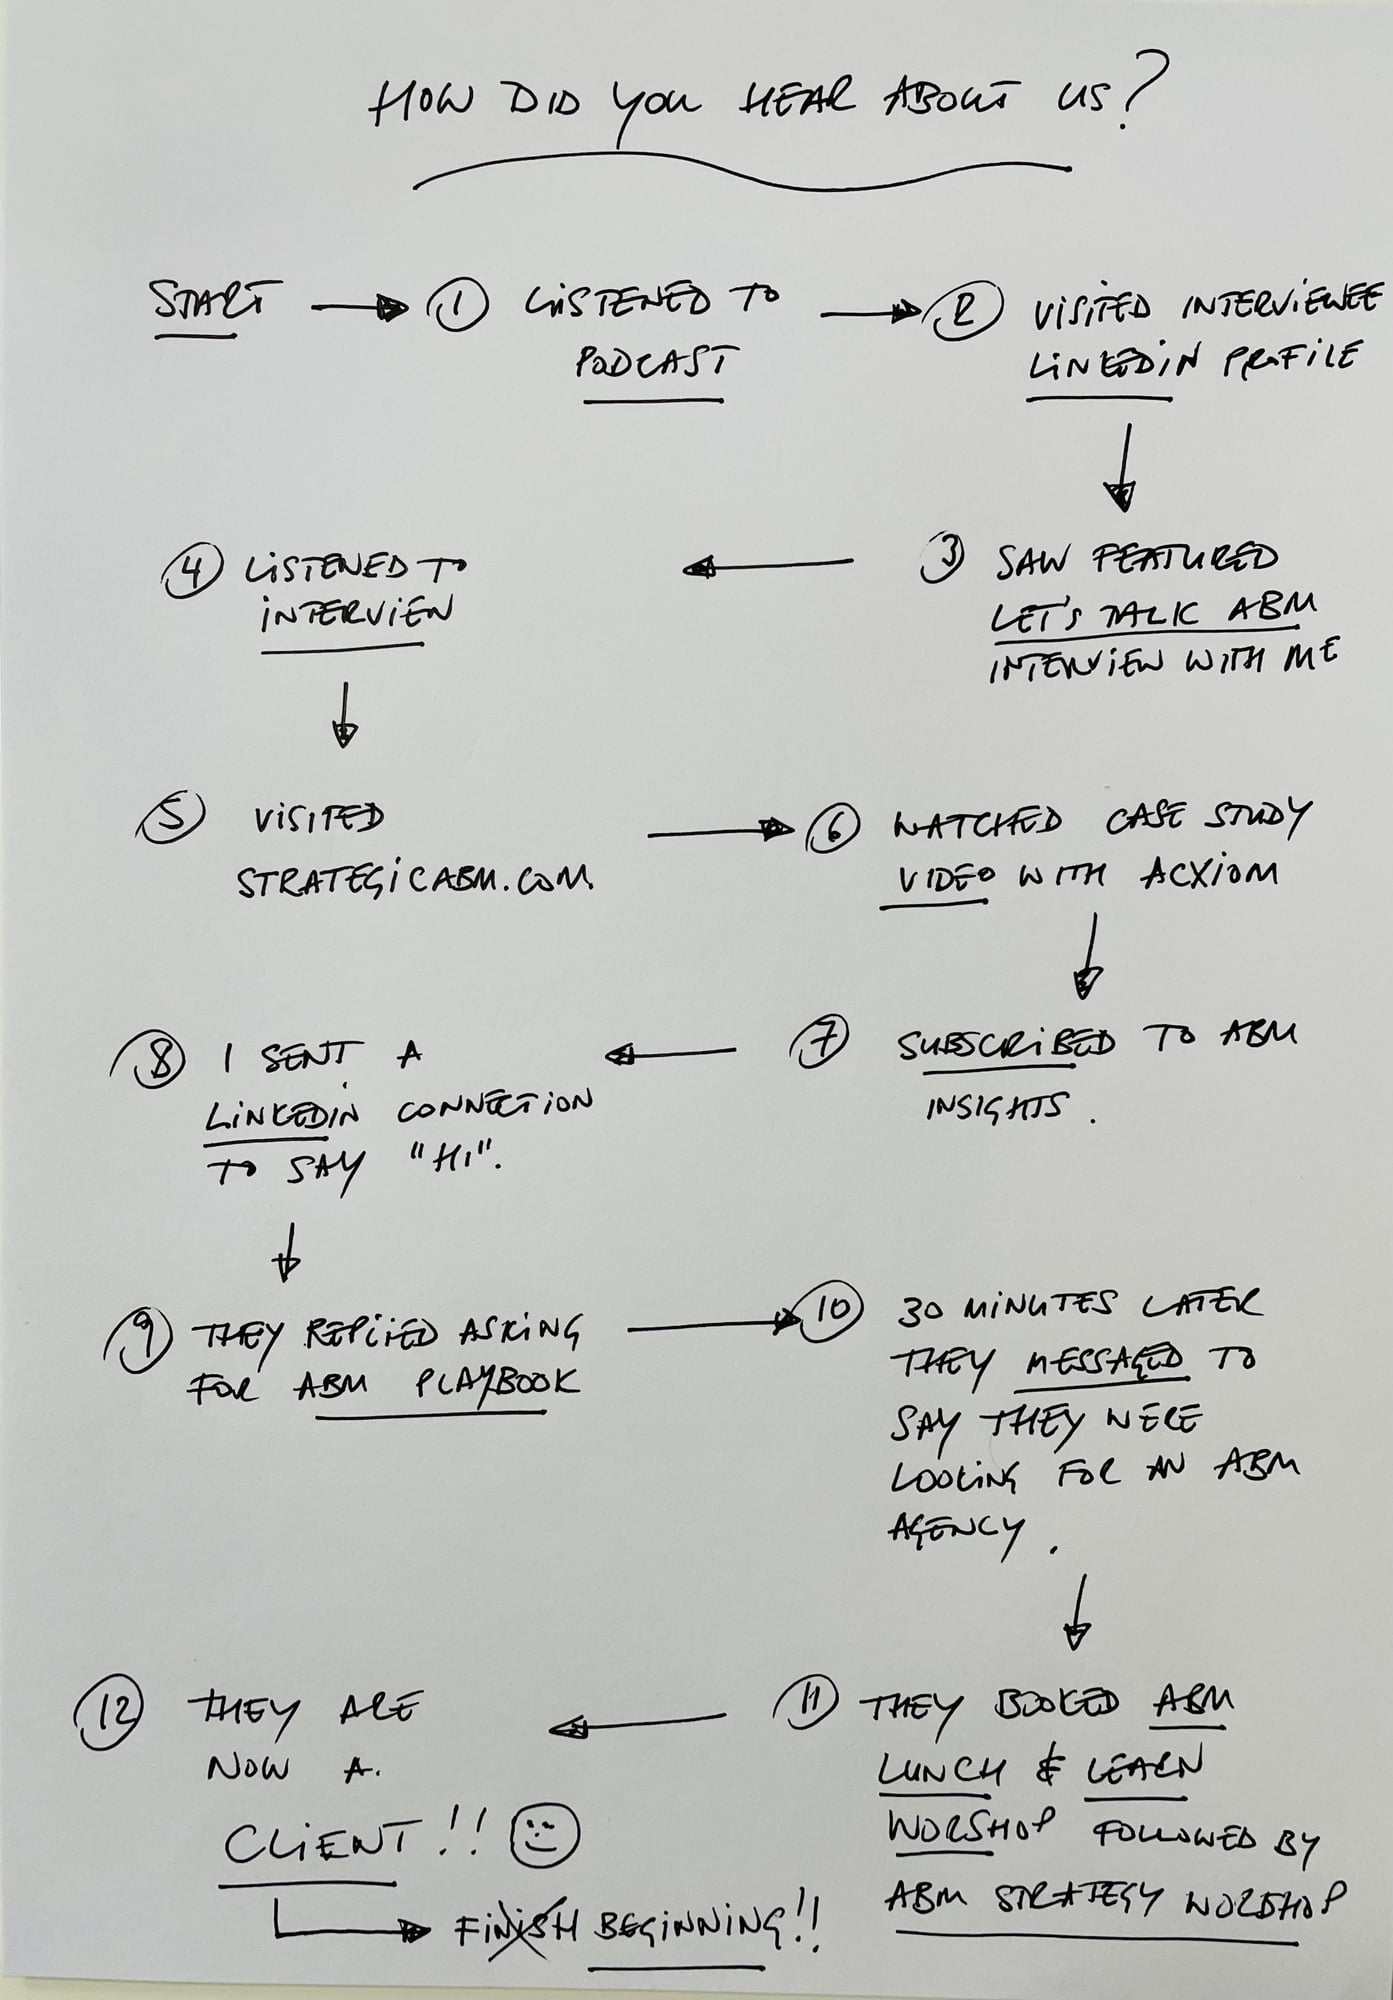 HOW DID YOU HEAR ABOUT US?
START
1 LISTENED TO
PODCAST
2 VISITED INTERVIEWEE
LINKEDIN PROFILE
3 SAW FEATURED
LET'S TALK ABM
INTERVIEW WITH ME
4 LISTENED TO
INTERVIEW
5 VISITED
STRATEGICABM.COM
6 WATCHED CASE STUDY
VIDEO WITH ACXIOM
7 SUBSCRIBED TO ABM
INSIGHTS.
8 I SENT A
LINKEDIN CONNECTION
TO SAY "HI".
9 THEY REPLIED ASKING
FOR ABM PLAYBOOK
10 30 MINUTES LATER
THEY MESSAGED TO
SAY THEY WERE
LOOKING FOR AN ABM
AGENCY.
11 THEY BOOKED ABM
LUNCH & LEARN
WORSHOP FOLLOWED BY
ABM STRATEGY WORSHOP
12 THEY ARE
NOW A.
CLIENT!!
FINISH BEGINNING!!